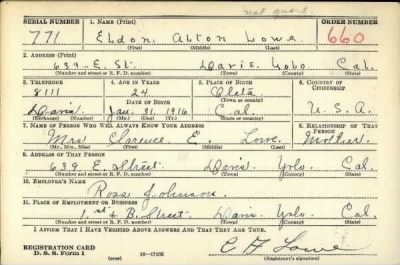 nat guard.
SERIAL NUMBER 1. NAME (Print) ORDER NUMBER
771 Eldon Alton Lowe 660
(First) (Middle) (Last)
2. ADDRESS (Print)
639 - E. St. Davis, Yolo Cal.
(Number and street or R. F. D. number) (Town) (County) (State)
3. TELEPHONE 4. AGE IN YEARS 5. PLACE OF BIRTH 6. COUNTRY OF CITIZENSHIP
8111 24
DATE OF BIRTH (Town or county)
Davis Jan. 31, 1916 Cal. U. S. A.
(Exchange) (Number) (Mo.) (Day) (Yr.) (State or country)
7. NAME OF PERSON WHO WILL ALWAYS KNOW YOUR ADDRESS 8. RELATIONSHIP OF THAT PERSON
Mrs Clarence E Lowe Mother.
(Mr., Mrs., Miss) (First) (Middle) (Last)
9. ADDRESS OF THAT PERSON
639 E Street Davis Yolo Cal.
(Number and street or R. F. D. number) (Town) (County) (State)
10. EMPLOYER'S NAME
Ross Johnson.
11. PLACE OF EMPLOYMENT OR BUSINESS
1st & B. Street Davis Yolo. Cal.
(Number and street or R. F. D. number) (Town) (County) (State)
I AFFIRM THAT I HAVE VERIFIED ABOVE ANSWERS AND THAT THEY ARE TRUE.
REGISTRATION CARD
D. S. S. Form 1 Lowe
(Registrant's signature)